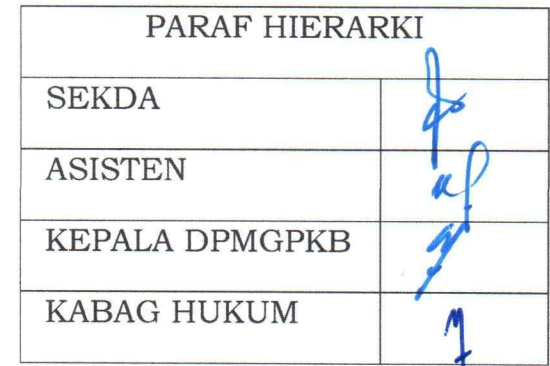 PARAF HIERARKI
SEKDA
ASISTEN
KEPALA DPMGPKB
KABAG HUKUM